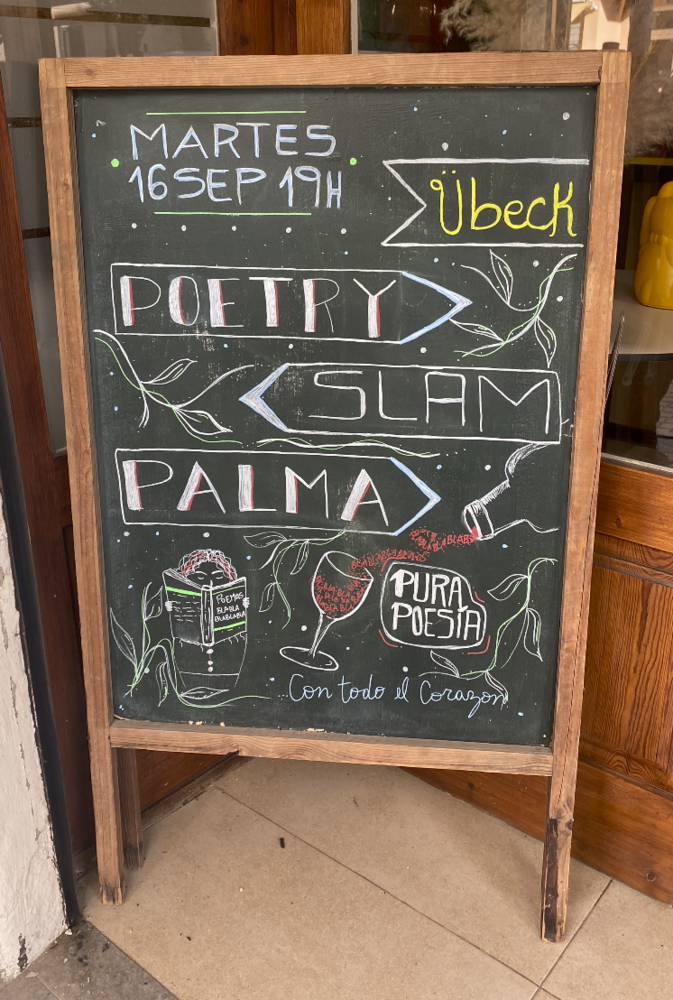 MARTES
16 SEP 19H
Übeck
POETRY
SLAM
PALMA
POEMAS
BLABLA
BLABLABLA
PURA
POESÍA
Con todo el Corazon